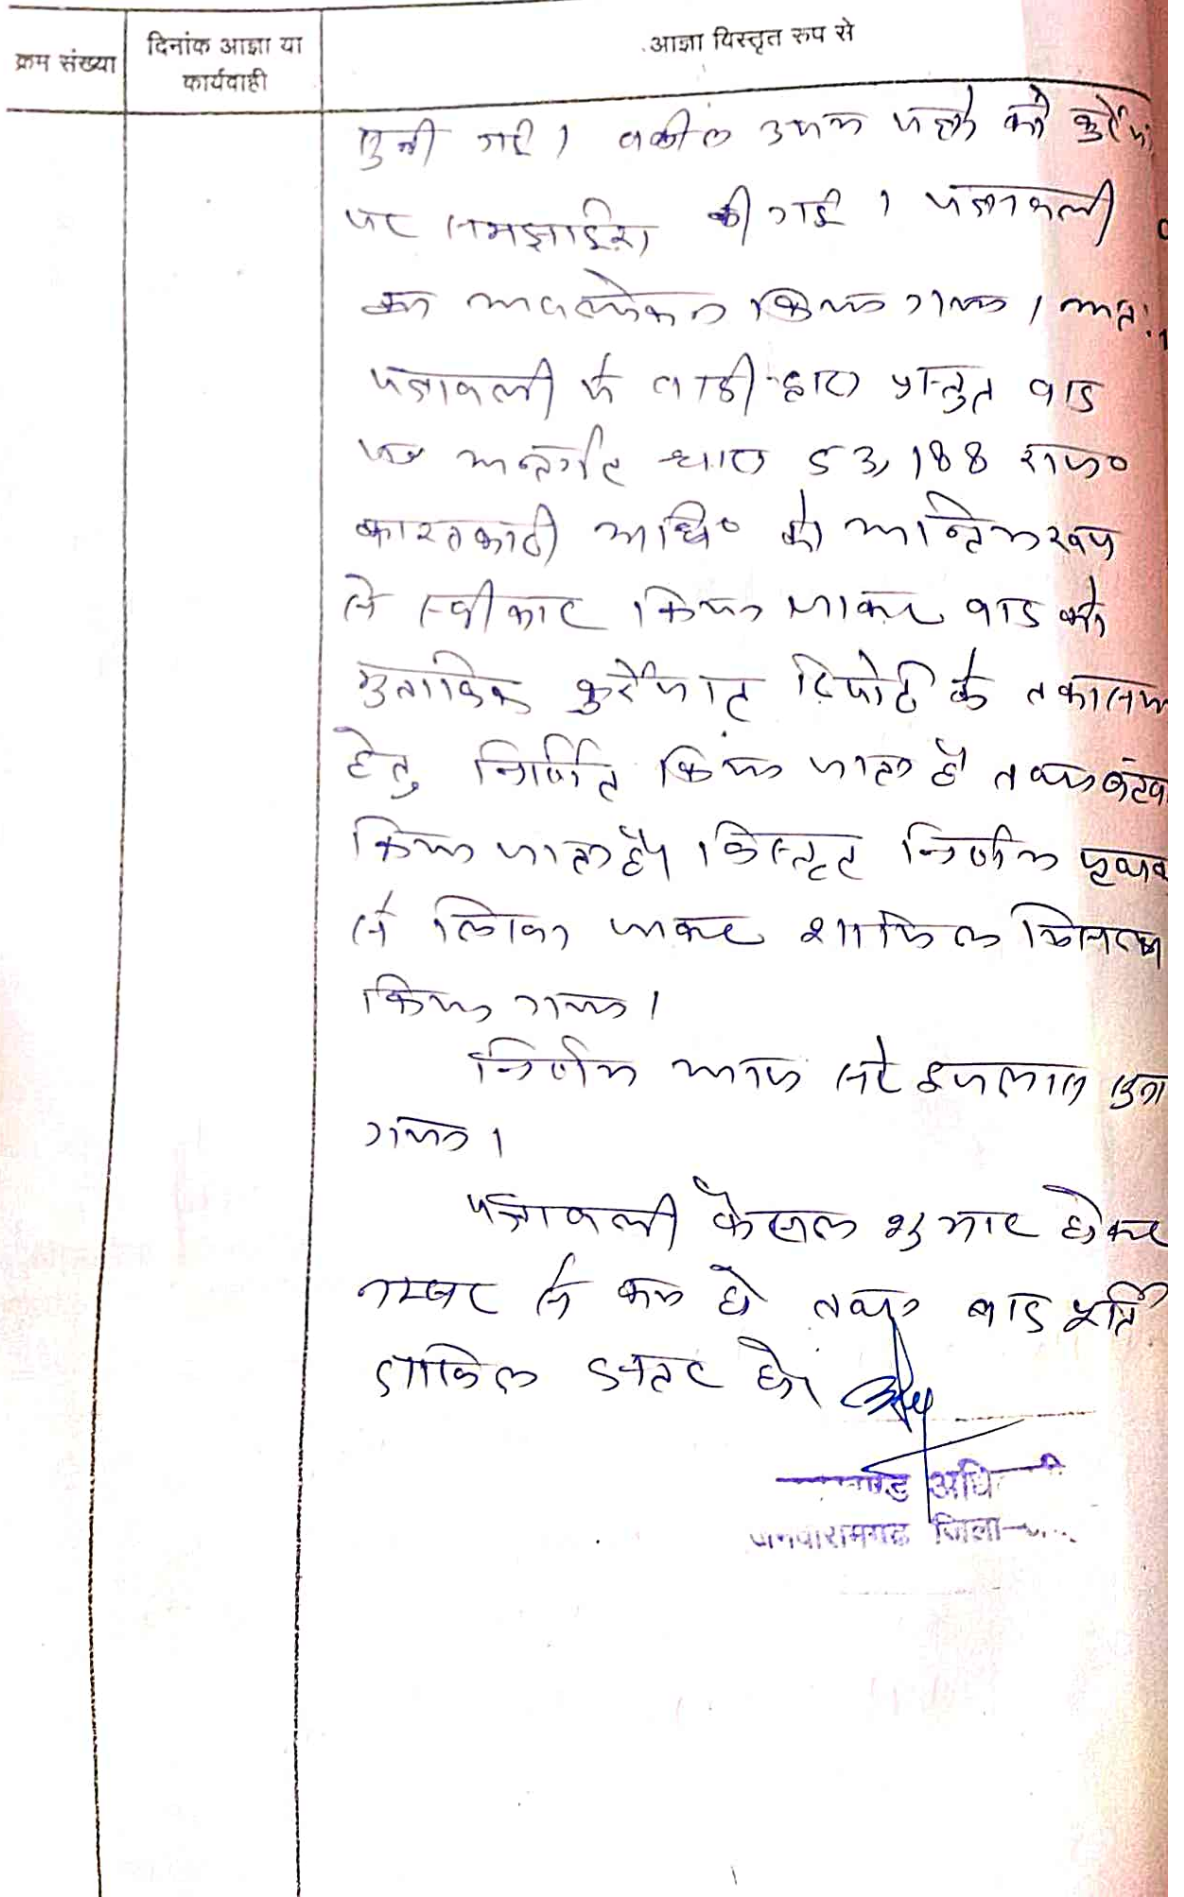 क्रम संख्या
दिनांक आज्ञा या
कार्यवाही
आज्ञा विस्तृत रुप से
सुनी गई। वकील उभय पक्षो को कुर्रेजात
पर समझाईश की गई। पत्रावली
का अवलोकन किया गया। अतः
पत्रावली में वादी द्वारा प्रस्तुत वाद
पत्र अन्तर्गत धारा 53, 188 राज०
काश्तकारी अधि० को अन्तिम रूप
से स्वीकार किया जाकर वाद को
मुताबिक कुर्रेजात रिपोर्ट के तकासमा
हेतु निर्णित किया जाता है तथा
किया जाता है। विस्तृत निर्णय पृथक
से लिखा जाकर शामिल मिसल
किया गया।
निर्णय आज सरे इजलास
गया।
पत्रावली फैसल शुमार होकर
नम्बर से कम हो तथा बाद पूर्ति
दाखिल दफ्तर हो।
अधि
जमवारामगढ जिला